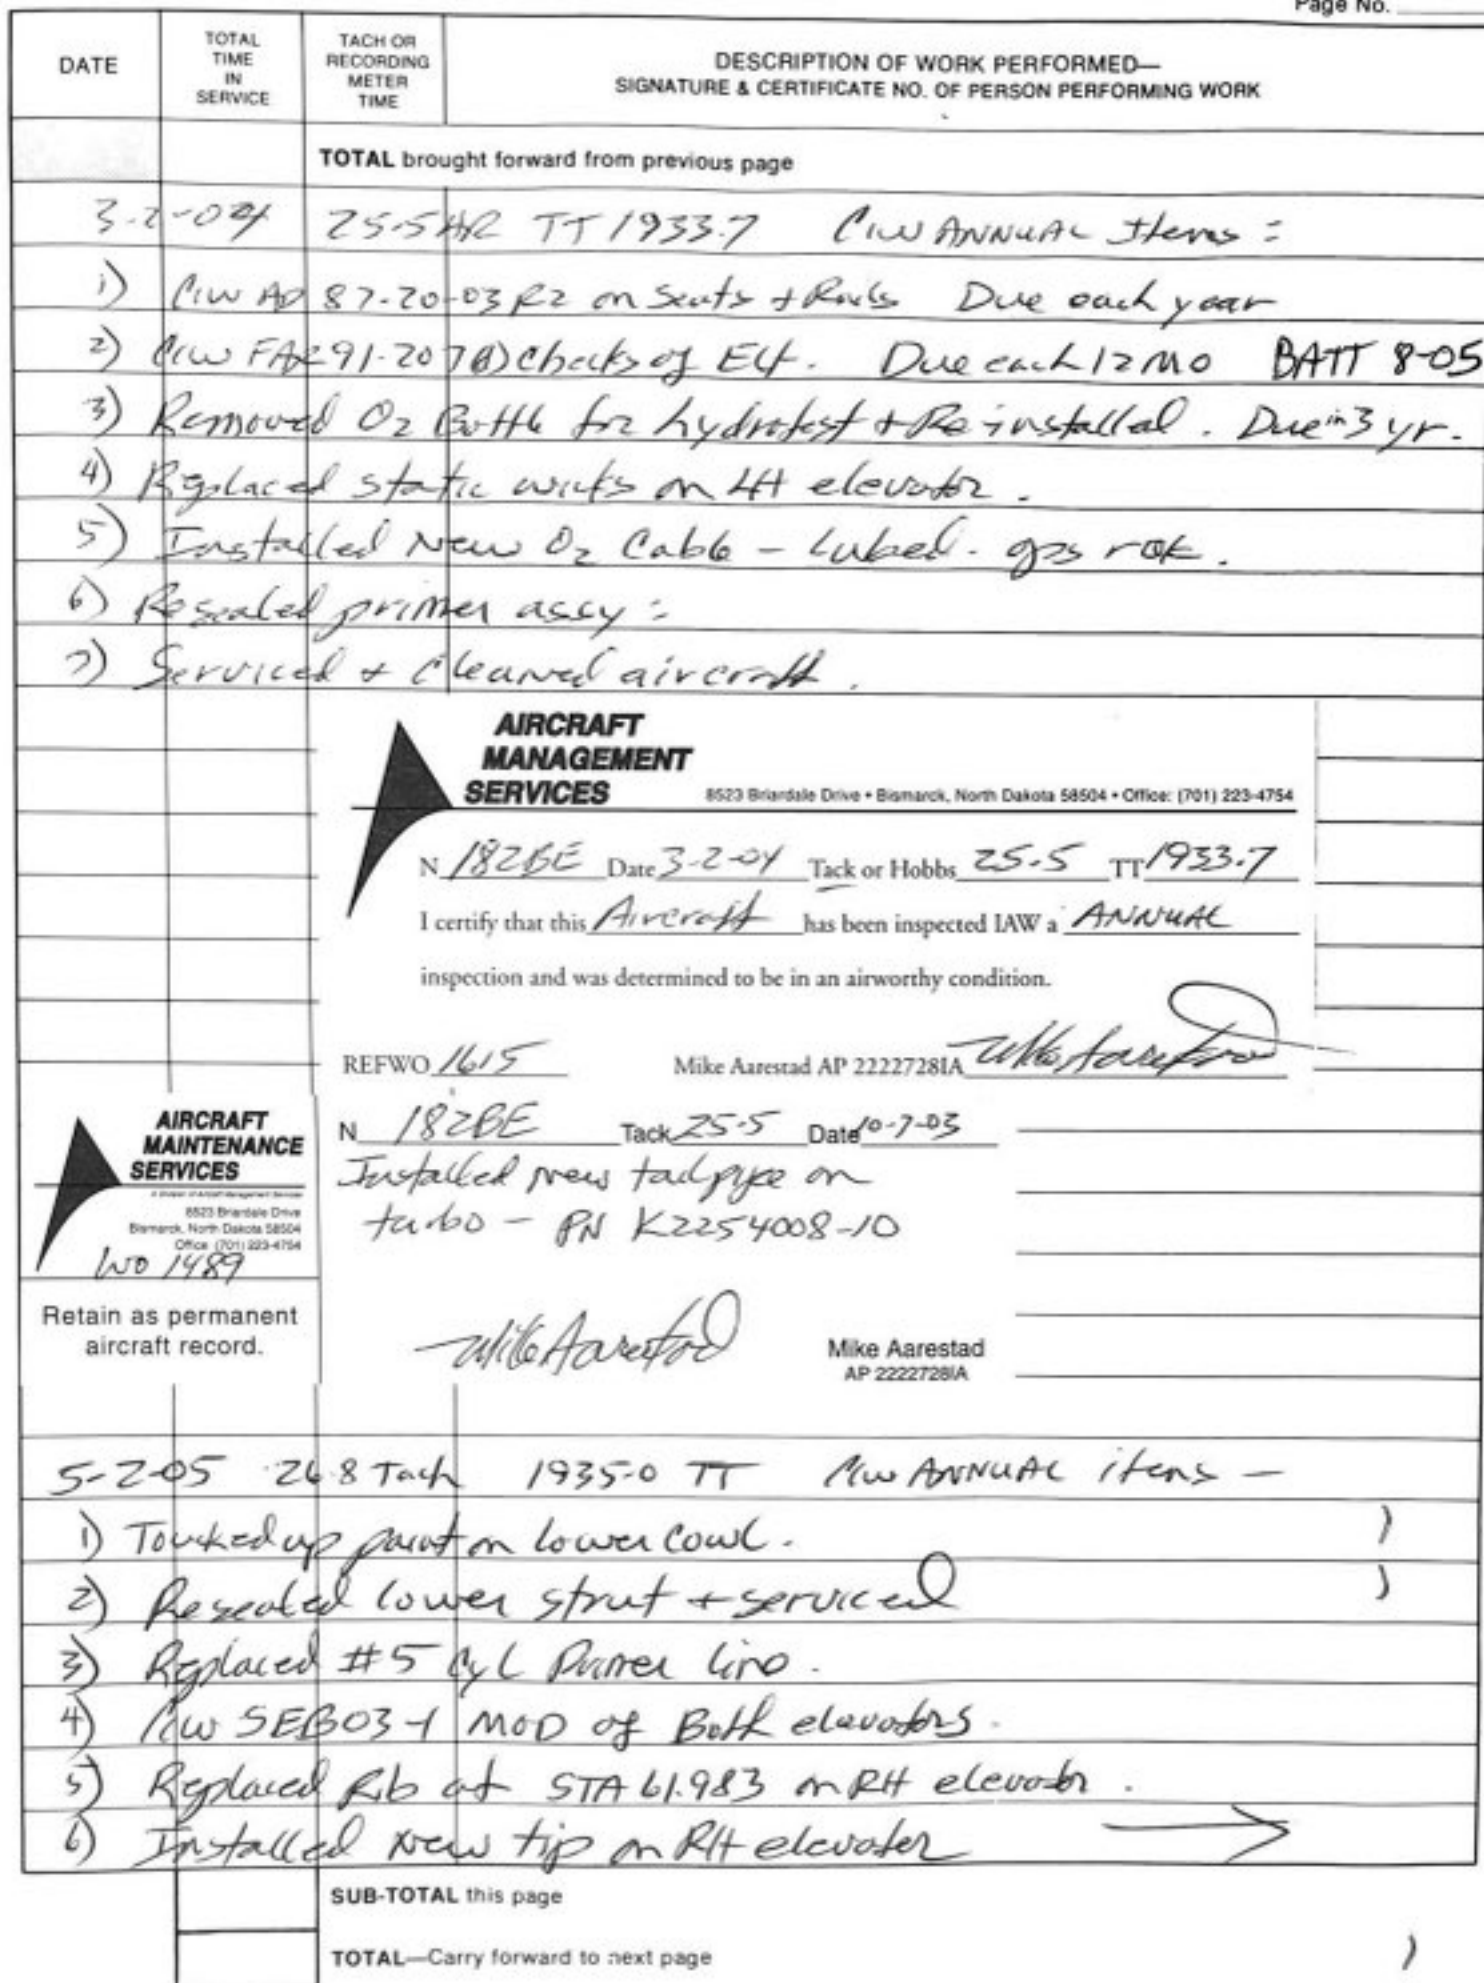 Page No.
DATE
TOTAL
TIME
IN
SERVICE
TACH OR
RECORDING
METER
TIME
DESCRIPTION OF WORK PERFORMED—
SIGNATURE & CERTIFICATE NO. OF PERSON PERFORMING WORK
TOTAL brought forward from previous page
3-2-04 25.5 HR TT 1933.7 C/W ANNUAL Items:
1) C/W AD 87-20-03 R2 on Seats + Rails Due each year
2) C/W FAR 91-207(d) Checks of Elt. Due each 12 MO BATT 8-05
3) Removed O2 Bottle for hydrotest + Re-installed. Due in 3 yr.
4) Replaced static wicks on LH elevator.
5) Installed New O2 Cable - Lubed - ops
6) Resealed primer assy:
7) Serviced + Cleaned aircraft.
AIRCRAFT
MANAGEMENT
SERVICES
8523 Briardale Drive • Bismarck, North Dakota 58504 • Office: (701) 223-4754
N 182BE Date 3-2-04 Tack or Hobbs 25.5 TT 1933.7
I certify that this Aircraft has been inspected IAW a ANNUAL
inspection and was determined to be in an airworthy condition.
REFWO 1615 Mike Aarestad AP 2222728IA Mike Aarestad
AIRCRAFT
MAINTENANCE
SERVICES
A Division of Aircraft Management Services
8523 Briardale Drive
Bismarck, North Dakota 58504
Office (701) 223-4754
WO 1489
Retain as permanent
aircraft record.
N 182BE Tack 25.5 Date 10-7-03
Installed new tailpipe on
turbo - PN K2254008-10
Mike Aarestad
Mike Aarestad
AP 2222728IA
5-2-05 26.8 Tach 1935.0 TT C/W ANNUAL items -
1) Touched up paint on lower Cowl.
2) Resealed lower strut + serviced
3) Replaced #5 Cyl Primer line.
4) C/W SEB03-1 MOD of Both elevators.
5) Replaced Rib at STA 61.983 on RH elevator.
6) Installed New tip on RH elevator →
SUB-TOTAL this page
TOTAL—Carry forward to next page